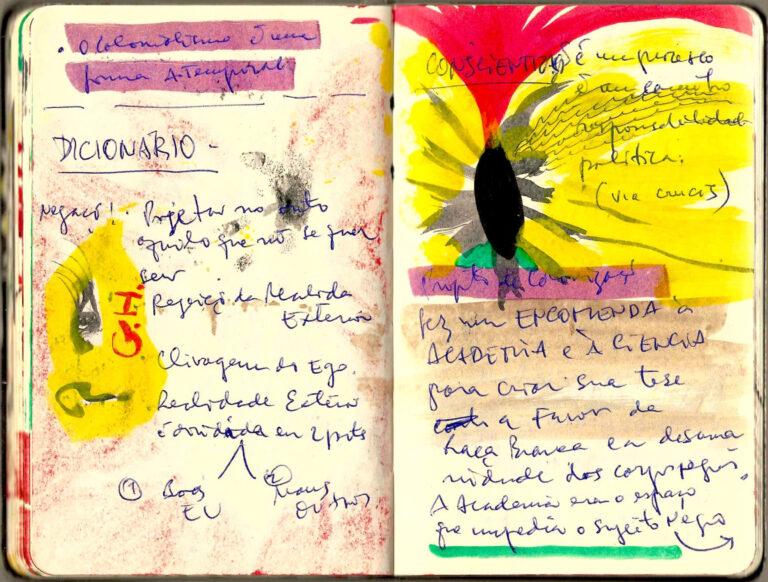 . O Colonialismo é uma
forma A-temporal
DICIONÁRIO -
Negação! . Projetar no outro
aquilo que não se quer
ser
Rejeição da Realidade
Exterior
Q.I.
Clivagem do Ego.
Realidade Exterior
é dividida en 2 parts
① Boas
EU
② Maus
OUTROS
CONSCIENTIZAR é um processo
é um
responsabilidade
política.
(via crucis)
Projeto de Colonização
fez uma ENCOMENDA à
ACADEMIA e À CIÊNCIA
para criar sua tese
a Favor da
Raça Branca e a desuma
nidade dos corpos negros.
A Academia era o espaço
que impedia o Sujeito Negro